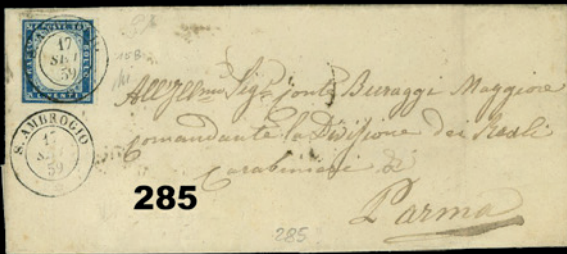 17
59
S. AMBROGIO
17
59
All Ill.mo Sig.r Conte Buraggi Maggiore
Comandante la Divisione dei Reali
Carabinieri di
Parma
285
285